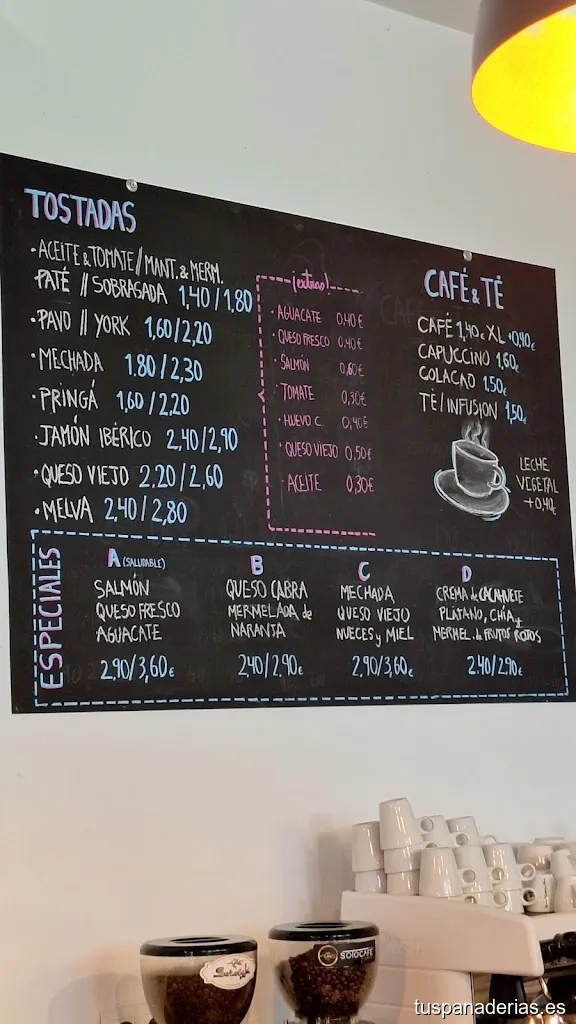 TOSTADAS
• ACEITE & TOMATE // MANT. & MERM.
PATÉ // SOBRASADA 1,40/1,80
• PAVO // YORK 1,60/2,20
• MECHADA 1.80/2,30
• PRINGÁ 1,60/2,20
• JAMÓN IBÉRICO 2,40/2,90
• QUESO VIEJO 2,20/2,60
• MELVA 2,40/2,80
¡extras!
• AGUACATE 0,40€
• QUESO FRESCO 0,40€
• SALMÓN 0,60€
• TOMATE 0,30€
• HUEVO C. 0,40€
• QUESO VIEJO 0.50€
• ACEITE 0,30€
CAFÉ & TÉ
CAFÉ 1,40€ XL +0,40€
CAPUCCINO 1,60€
COLACAO 1,50€
TÉ/INFUSION 1,50€
LECHE
VEGETAL
+0,40€
ESPECIALES
A (SALUDABLE)
SALMÓN
QUESO FRESCO
AGUACATE
2,90/3,60€
B
QUESO CABRA
MERMELADA de
NARANJA
2,40/2,90€
C
MECHADA
QUESO VIEJO
NUECES y MIEL
2,90/3,60€
D
CREMA de CACAHUETE
PLÁTANO, CHÍA y
MERMEL. de FRUTOS ROJOS
2,40/2,90€
SOLOCAFÉ
tuspanaderias.es